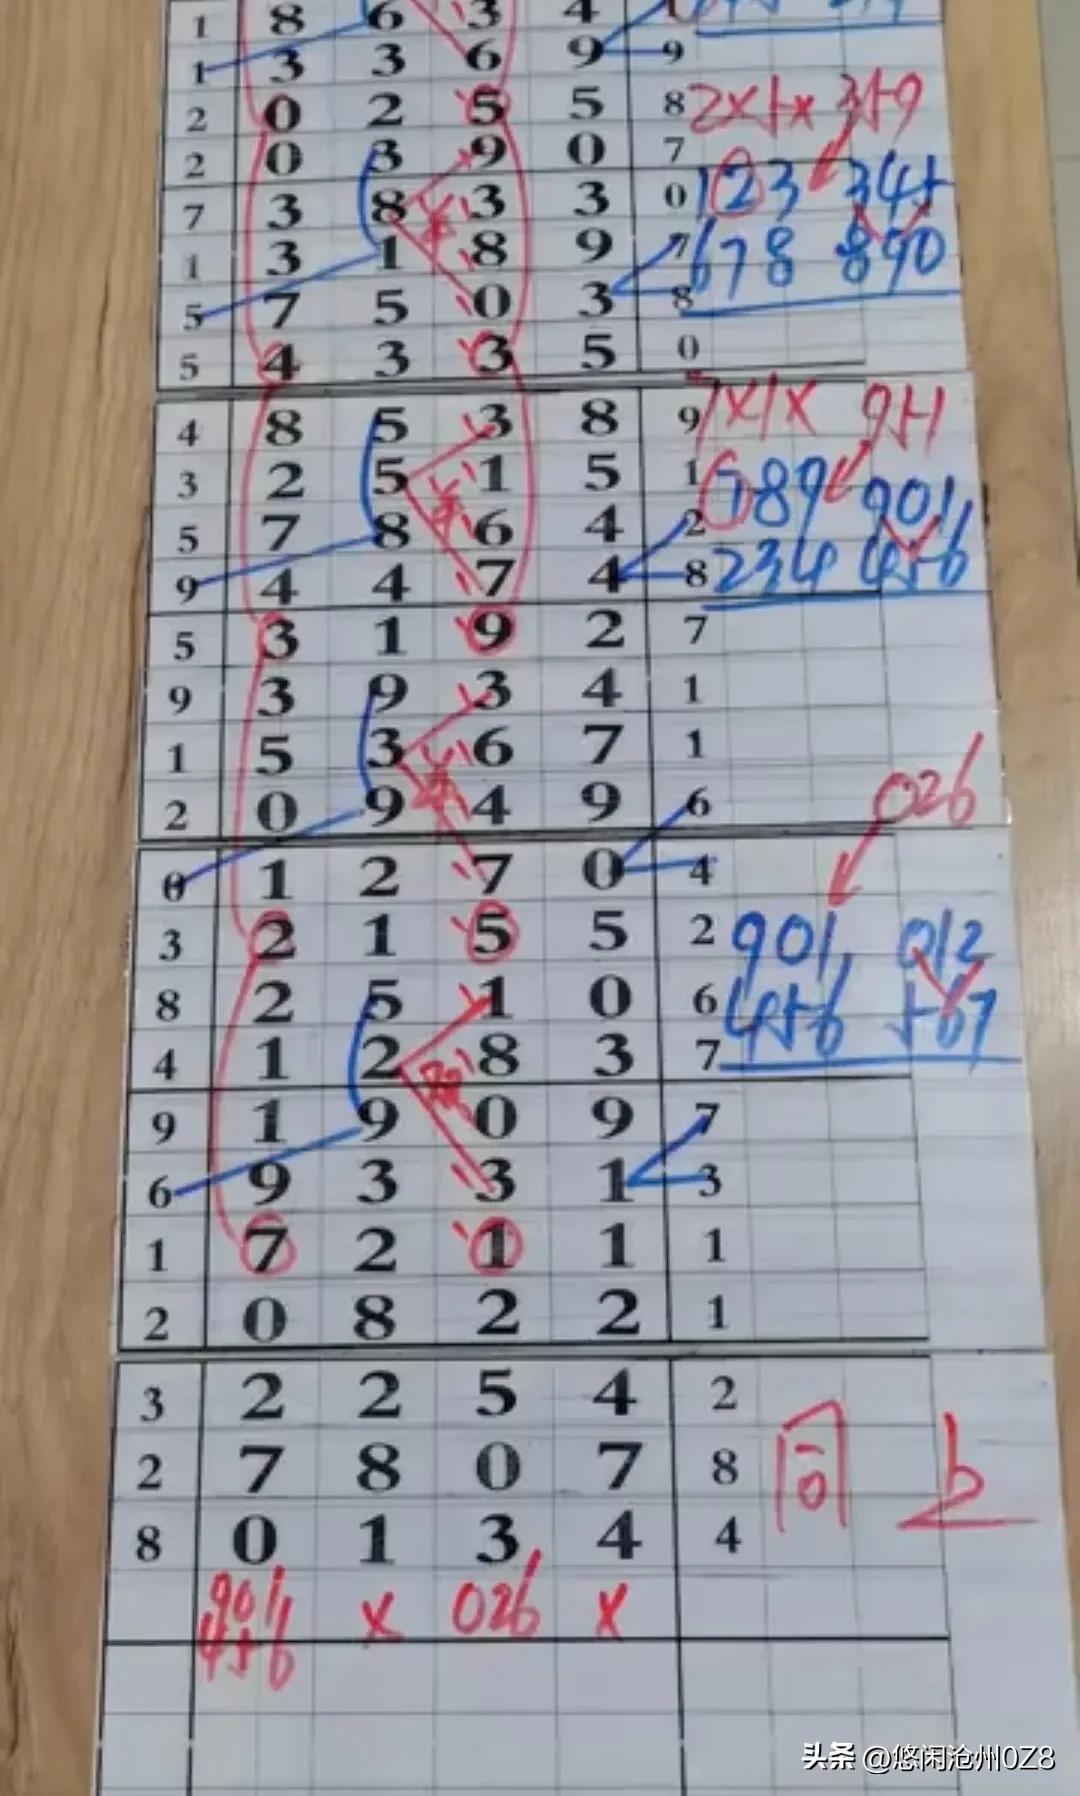 1 8 6 3 4
1 3 3 6 9 9
2 0 2 5 5 8 2×5× 359
2 0 3 9 0 7
7 3 8 3 3 0 123 345
1 3 1 8 9 7 678 890
5 7 5 0 3 8
5 4 3 3 5 0
4 8 5 3 8 9 7×1× 951
3 2 5 1 5 1 789 901
5 7 8 6 4 2
9 4 4 7 4 8 234 456
5 3 1 9 2 7
9 3 9 3 4 1
1 5 3 6 7 1 026
2 0 9 4 9 6
0 1 2 7 0 4
3 2 1 5 5 2 901, 012
8 2 5 1 0 6 456 567
4 1 2 8 3 7
9 1 9 0 9 7
6 9 3 3 1 3
1 7 2 1 1 1
2 0 8 2 2 1
3 2 2 5 4 2
2 7 8 0 7 8 同 上
8 0 1 3 4 4
901 × 026 ×
456
头条 @悠闲沧州0Z8